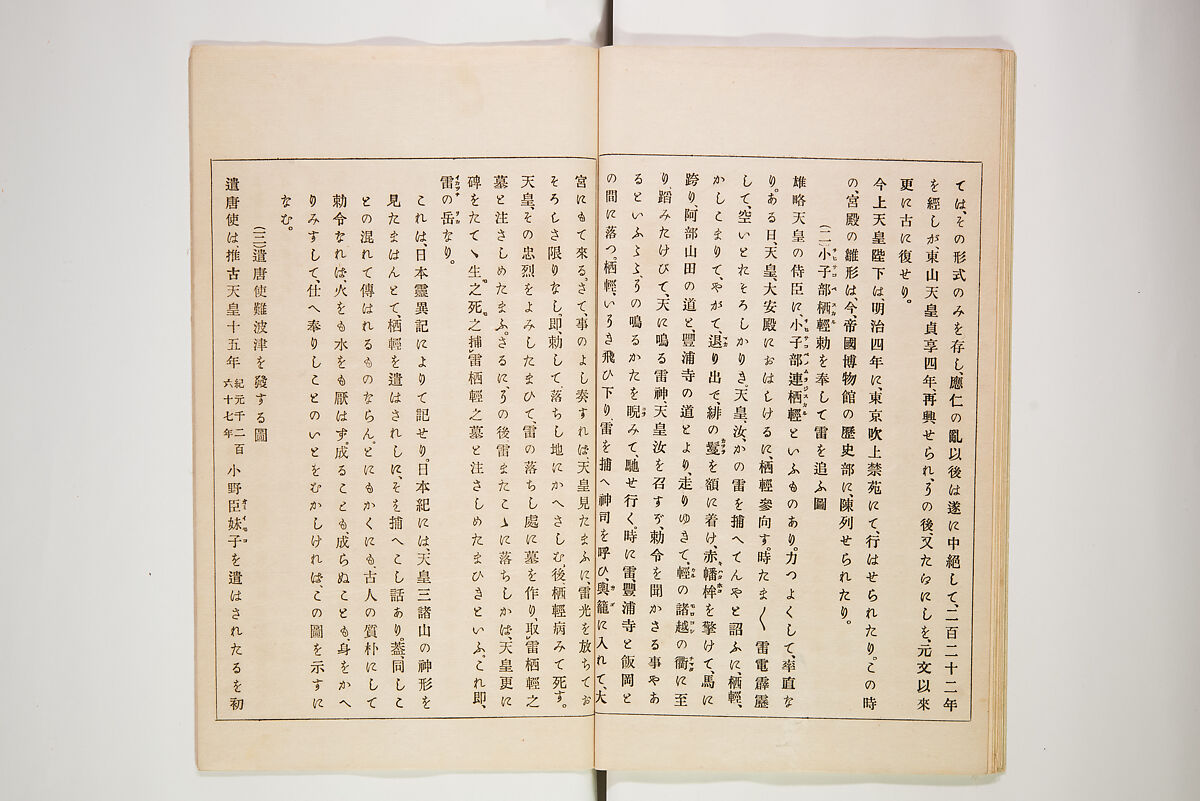 ては、その形式のみを存し、應仁の亂以後は遂に中絶して、二百二十二年
を經しが東山天皇貞享四年、再興せられ、その後、又たえにしを、元文以來
更に古に復せり。
今上天皇陛下は、明治四年に、東京吹上禁苑にて、行はせられたり。この時
の、宮殿の雛形は、今、帝國博物館の歷史部に、陳列せられたり。
(二)小子部栖輕勅を奉して雷を追ふ圖
雄略天皇の侍臣に、小子部連栖輕といふものあり。力つよくして、率直な
り。ある日、天皇、大安殿におはしけるに、栖輕參向す。時たま〱雷電霹靂
して、空いとおそろしかりき。天皇、汝、かの雷を捕へてんやと詔ふに、栖輕、
かしこまりて、やがて、退り出で、緋の鬘を額に着け、赤幡桙を擎けて、馬に
跨り、阿部山田の道と、豐浦寺の道とより、走りゆきて、輕の諸越の衢に至
り、蹈みたけびて、天に鳴る雷神、天皇汝を召すぞ、勅令を聞かさる事やあ
るといふ〻、その鳴るかたを睨みて、馳せ行く、時に雷、豐浦寺と飯岡と
の間に落つ。栖輕、いそき飛ひ下り、雷を捕へ神司を呼ひ、輿籠に入れて、大
宮にもて來る。さて、事のよし奏すれは、天皇見たまふに、雷光を放ちてお
そろしさ限りなし。即、勅して、落ちし地にかへさしむ、後、栖輕病みて死す。
天皇、その忠烈をよみしたまひて、雷の落ちし處に墓を作り、取雷栖輕之
墓と注さしめたまふ。さるに、その後雷またこゝに落ちしかは、天皇更に
碑をたてゝ生之死之捕雷栖輕之墓と注さしめたまひきといふ。これ即、
雷の岳なり。
これは、日本靈異記によりて記せり。日本紀には、天皇三諸山の神形を
見たまはんとて、栖輕を遣はされしに、そを捕へこし話あり。蓋、同しこ
との混れて傳はれるものならん。とにもかくにも、古人の質朴にして
勅令なれは火をも水をも厭はず。成ることも、成らぬことも、身をかへ
りみすして、仕へ奉りしことのいとをむかしければ、この圖を示すに
なむ。
(三)遣唐使難波津を發する圖
遣唐使は、推古天皇十五年紀元千二百六十七年小野臣妹子を遣はされたるを初